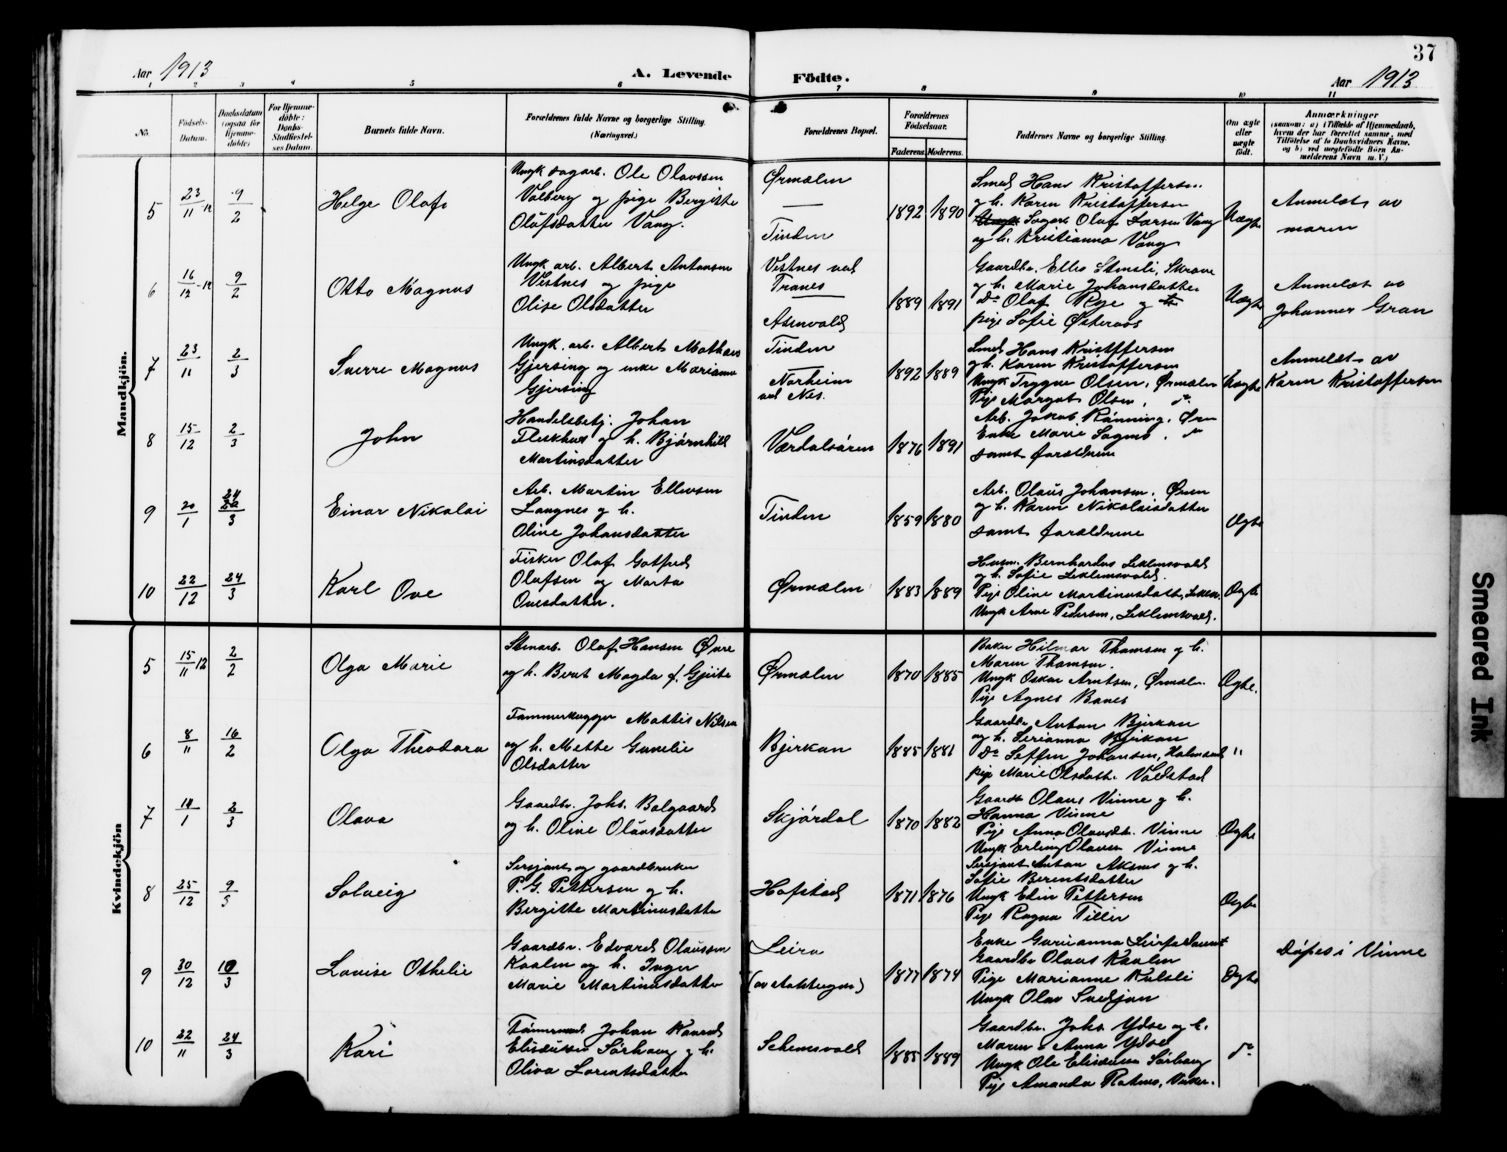 37
Aar 1913
A. Levende Födte.
Aar 1913
1 2 3 4 5 6 7 8 9 10 11
No.
Födsels-Datum.
Daabsdatum (ogsaa for Hjemme-döbte)
For Hjemme-döbte: Daabs-Stadfæstel-ses Datum.
Barnets fulde Navn.
Forældrenes fulde Navne og borgerlige Stilling. (Næringsvei.)
Forældrenes Bopæl.
Forældrenes Födselsaar.
Faderens. Moderens.
Faddernes Navne og borgerlige Stilling.
Om ægte eller uægte födt.
Anmærkninger
Mandkjön.
5 23/11-12 9/2 Helge Olaf
Ungk. sagarb. Ole Olavssen
Valberg og pige Bergitte
Olufsdatter Vang.
Ørmælen
Tinden
1892 1890
Smed Hans Kristoffersen
og h. Karen Kristoffersen
Sagarb. Olaf Larsen Vang
og h. Kristianna Vang
Uægte
Anmeldt av
moren
6 16/12-12 9/2 Otto Magnus
Ungk. arb. Albert Antonsen
Vestnes og pige
Olise Olsdatter
Vestnes ved
Tranes
1889 1891
og h. Marie Johansdatter
Do Olaf Roje og
pige Sofie Østeraas
Uægte
Anmeldt av
Johannes Gran
7 23/11 2/3 Sverre Magnus
Ungk. arb. Albert Mathias
Gjersing og enke Marianna
Gjersing
Tinden
Norheim
ved Nes.
1892 1889
Smed Hans Kristoffersen
og h. Karen Kristoffersen
Ungk Trygve Olsen, Ørmælen
Pige Margot Olsen, do
Uægte
Anmeldt av
Karen Kristoffersen
8 15/12 2/3 John
Handelsbetj. Johan
og h. Bjørnhild
Martinsdatter
Værdalsøren
1876 1891
Arb. Jakob Rønning, Øren
Enke Marie Sagmo, do
samt forældrene
9 20/1 24/3 Einar Nikolai
Arb. Martin Ellevsen
Langnes og h.
Oline Johansdatter
Tinden
1859 1880
Arb. Olaus Johansen, Øren
og h. Karen Nikolaisdatter
samt forældrene
Ægte
10 22/12 24/3 Karl Ove
Fisker Olaf Gotfred
Olufsen og Marta
Ovesdatter.
Ørmælen
1883 1889
Husm. Bernhardus Leklemsvald
og h. Sofie Leklemsvald.
Pige Oline Martinusdatt, Leklem.
Ungk Arne Pedersen, Leklemsvald.
Ægte
Kvindekjön
5 15/11 12 2/2 Olga Marie
Stenarb. Olaf Hansen Øvre
og h. Berit Magda f. Gjeite
Ørmælen
1870 1885
Baker Hilmar Thomsen og h.
Maren Thomsen.
Ungk Oskar Arntsen, Ørmælen
Pige Agnes Banes
Ægte.
6 8/11 16/2 Olga Theodora
Tømmerhugger Mathis Nilsen
og h. Mette Gunelie
Olsdatter
Bjerkan
1885 1881
Gaardbr. Anton Bjerkan
og h. Serianna Bjerkan
Do Steffen Johansen,
pige Marie Olsdatt. Valstad
"
7 14/1 2/3 Olava
Gaardbr. Johs. Balgaard
og h. Oline Olausdatter
Skjørdal
1870 1882
Gaardb Olaus Vinne og h.
Hanna Vinne
Pige Anna Olausdtr. Vinne
Ungk Erling Olausen Vinne
Ægte
8 25/12 9/3 Solveig
Sersjant og gaardbruker
P. G. Pettersen og h.
Bergitte Martinusdatter
Hofstad
1871 1876
Sersjant Anton Aksnes og h.
Sofie Berentsdatter
Ungk Edin Pettersen
Pige Ragna Tiller
Ægte
9 30/12 10/3 Lovise Othelie
Gaardbr. Edvard Olaussen
Kaalen og h. Inger
Marie Martinusdatter
Leira
1877 1874
Enke Gurianna Leirfald samt
Gaardbr Olaus Kaalen
Pige Marianne Kulsli
Ungk Olav Svedjan
Ægte
Døpes i Vinne
10 22/11 24/3 Kari
Tømmermand Johan Konrad
Eliseussen Sørhaug og h.
Oliva Lorentsdatter
1885 1889
Gaardbr. Johs Ydse og h.
Maren Anna Ydse
Ungk Ole Eliseussen Sørhaug
Pige Amanda
do
Smeared Ink